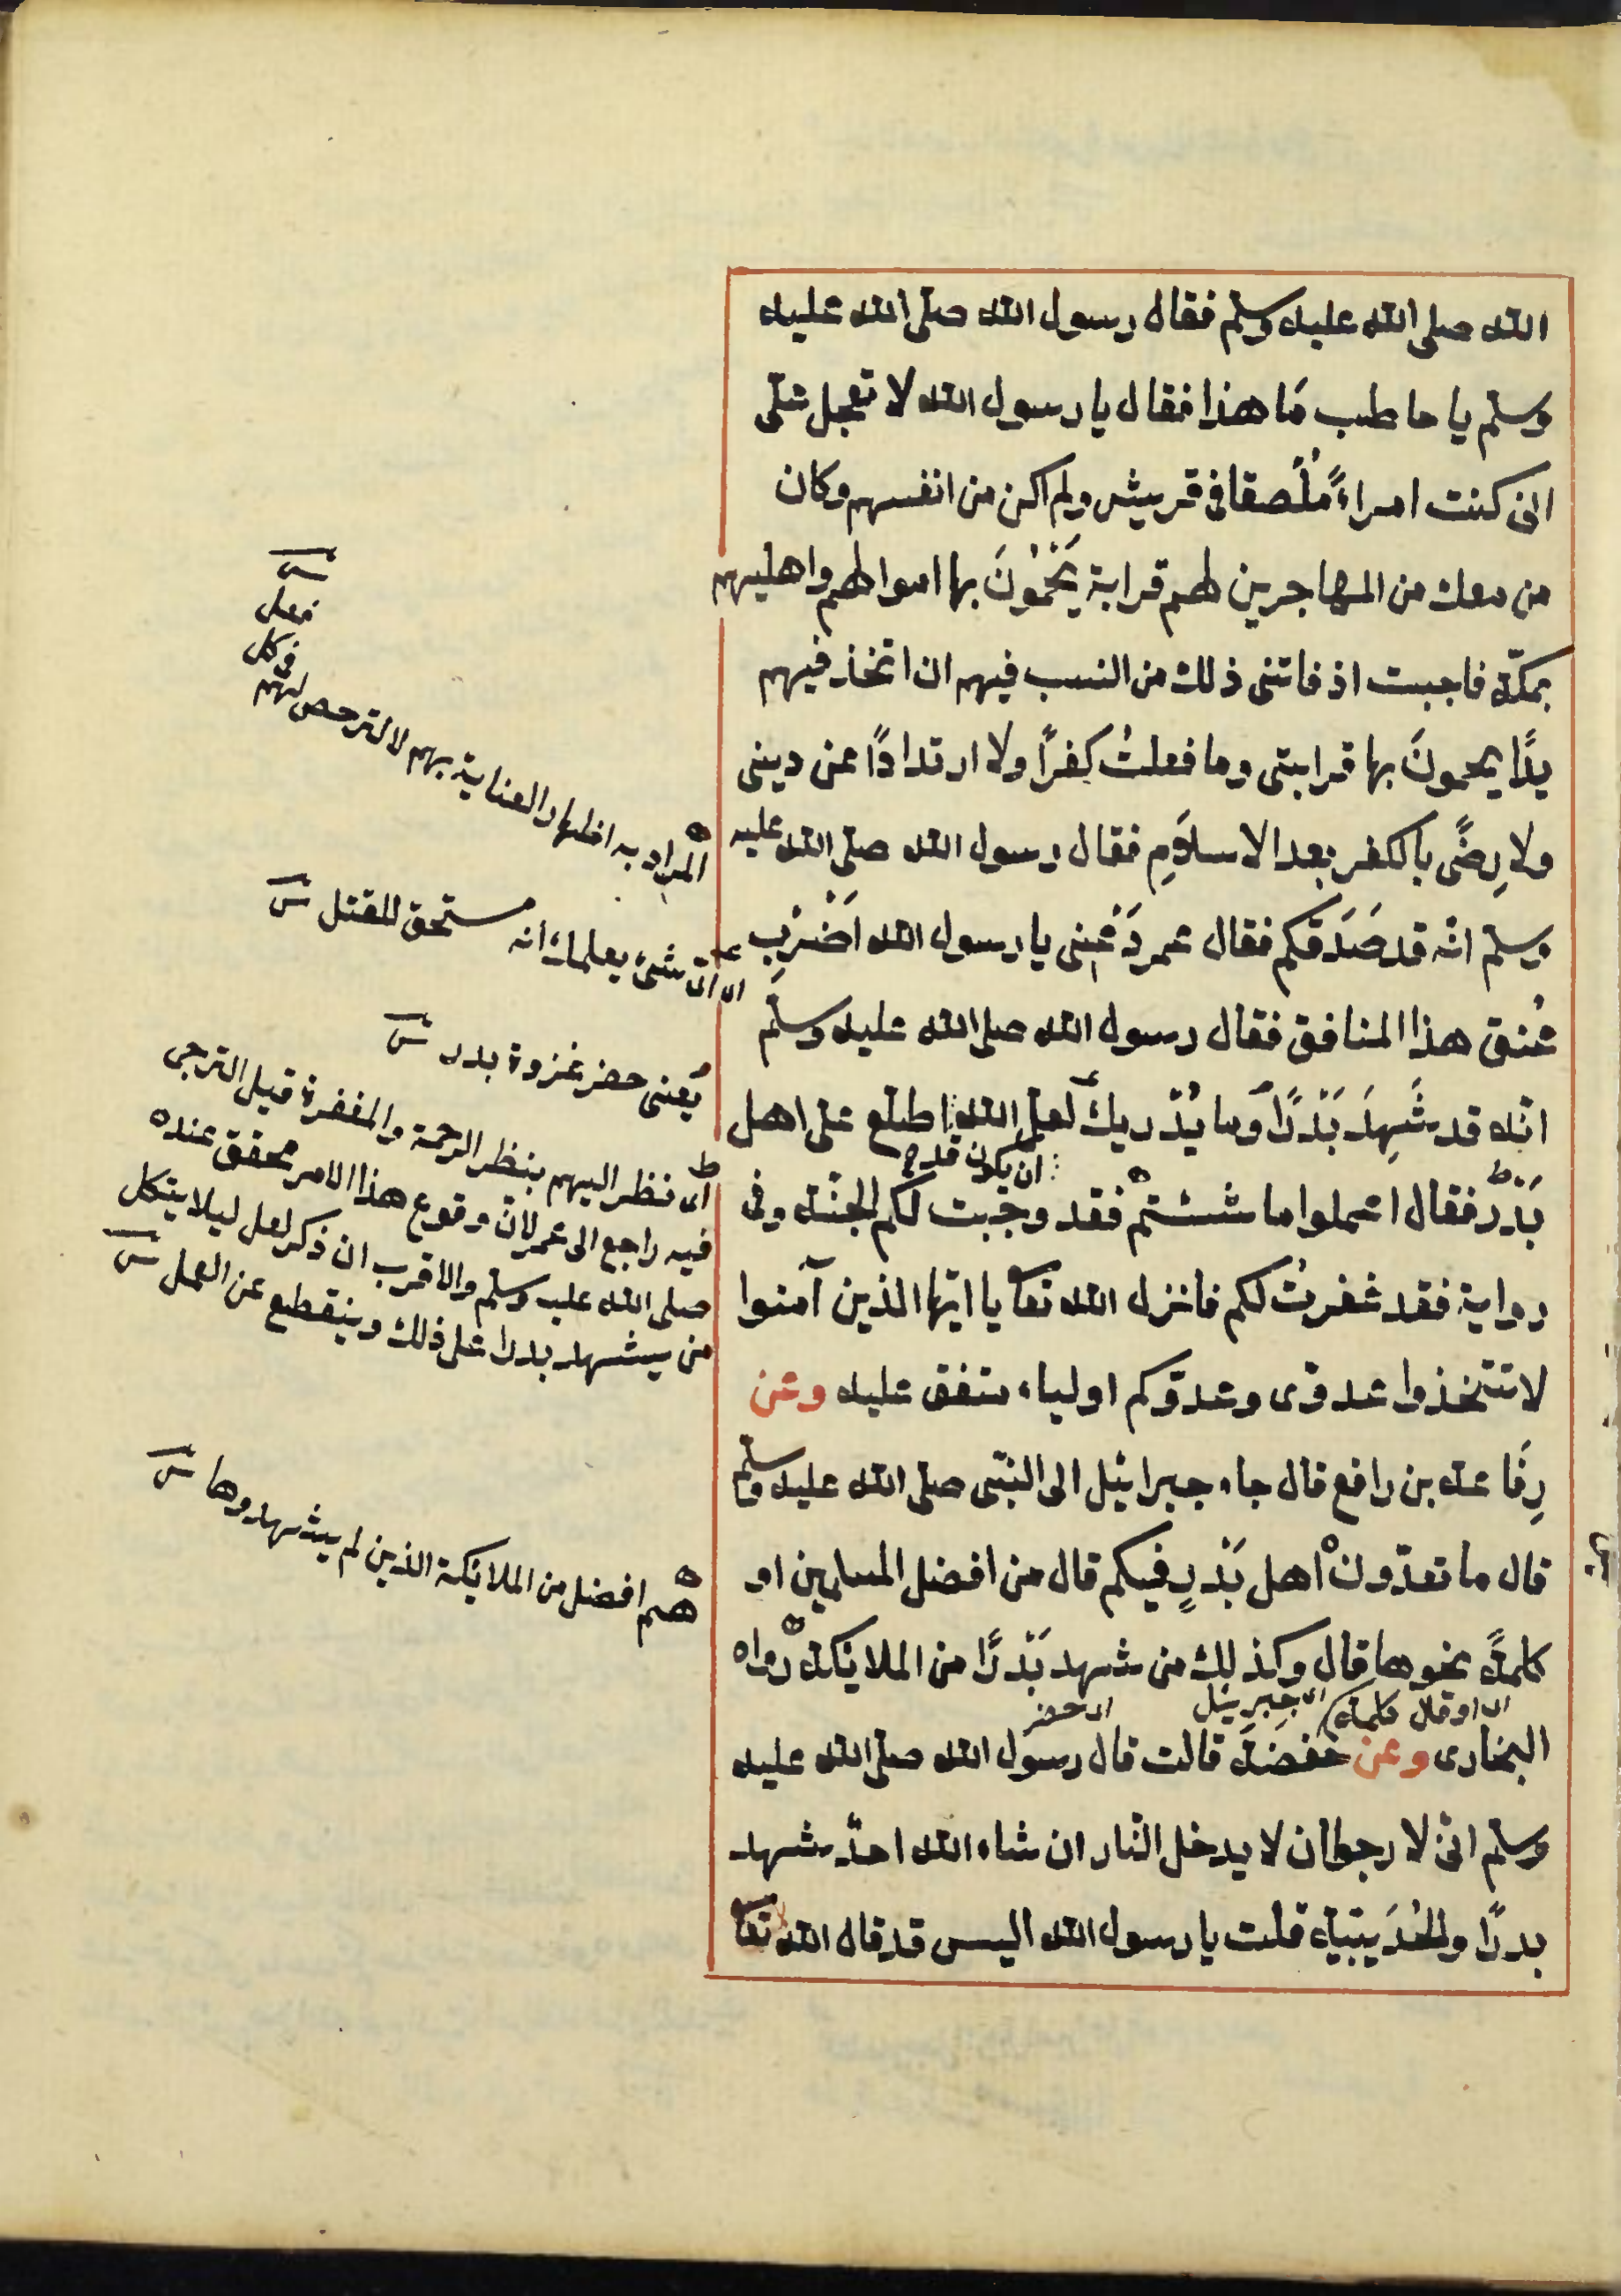 الله صلى الله عليه وسلم فقال رسول الله صلى الله عليه
وسلم يا حاطب مَا هذا فقال يا رسول الله لا تعجل علىّ
انى كنت امراءً مُلْصقا فى قريش ولم اكن من انفسهم وكان
من معك من المهاجرين لهم قرابة يَحْمُونَ بها اموالهم واهليهم
بمكّة فاحببت اذ فاتنى ذلك من النسب فيهم ان اتخذ فيهم
يدًا يحمونَ بها قرابتى وما فعلتُ كفرًا ولا ارتدادًا عن دينى
ولا رِضًى بالكفر بعد الاسلامِ فقال رسول الله صلى الله عليه
وسلم انّه قد صَدَقكم فقال عمر دَعْنى يا رسول الله اَضْرِب
عُنق هذا المنافق فقال رسول الله صلى الله عليه وسلّم
انّه قد شَهِدَ بَدْرًا وما يُدْريكَ لعل الله اطلع على اهل
ان يكون قد
بَدْرٍ فقال اعملوا ما شئتم فقد وجبت لكم الجنّة وفى
رواية فقد غفرتُ لكم فانزل الله تعا يا ايّها الذين آمنوا
لا تتخذوا عدوّى وعدوّكم اولياء متفق عليه وعن
رِفَاعة بن رافع قال جاء جبرائيل الى النبّى صلى الله عليه وسلم
قال ما تعدّون اهل بَدْرٍ فيكم قال من افضل المسلمين او
كلمةً نحوها قال وكذلك من شهد بَدْرًا من الملائكة رواه
اى او قال كلمة اى جبريئل اى حضر
البخارى وعن حفصَة قالت قال رسول الله صلى الله عليه
وسلم انّى لارجوا ان لا يدخل النّار ان شاء الله احدٌ شهد
بدرًا والحُدَيبية قلت يا رسول الله اليس قد قال الله تعا
المراد به اظهار العناية بهم لا الترخص لهم
فى كل
فعل
اى اىّ شئ يعلمك انه مستحق للقتل
يعنى حضر غزوة بدر
اى نظر اليهم بنظر الرحمة والمغفرة قيل الترجى
فيه راجع الى عمر لانّ وقوع هذا الامر محقق عنده
صلى الله عليه وسلم والاقرب ان ذكر لعل ليلا يتكل
من يشهد بدرا على ذلك وينقطع عن العمل
هم افضل من الملائكة الذين لم يشهدوها